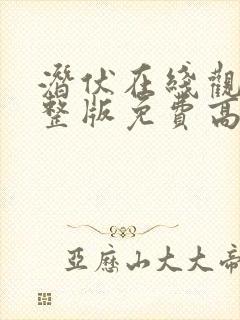 潛伏在綫觀
整版免費高
亞歷山大大帝